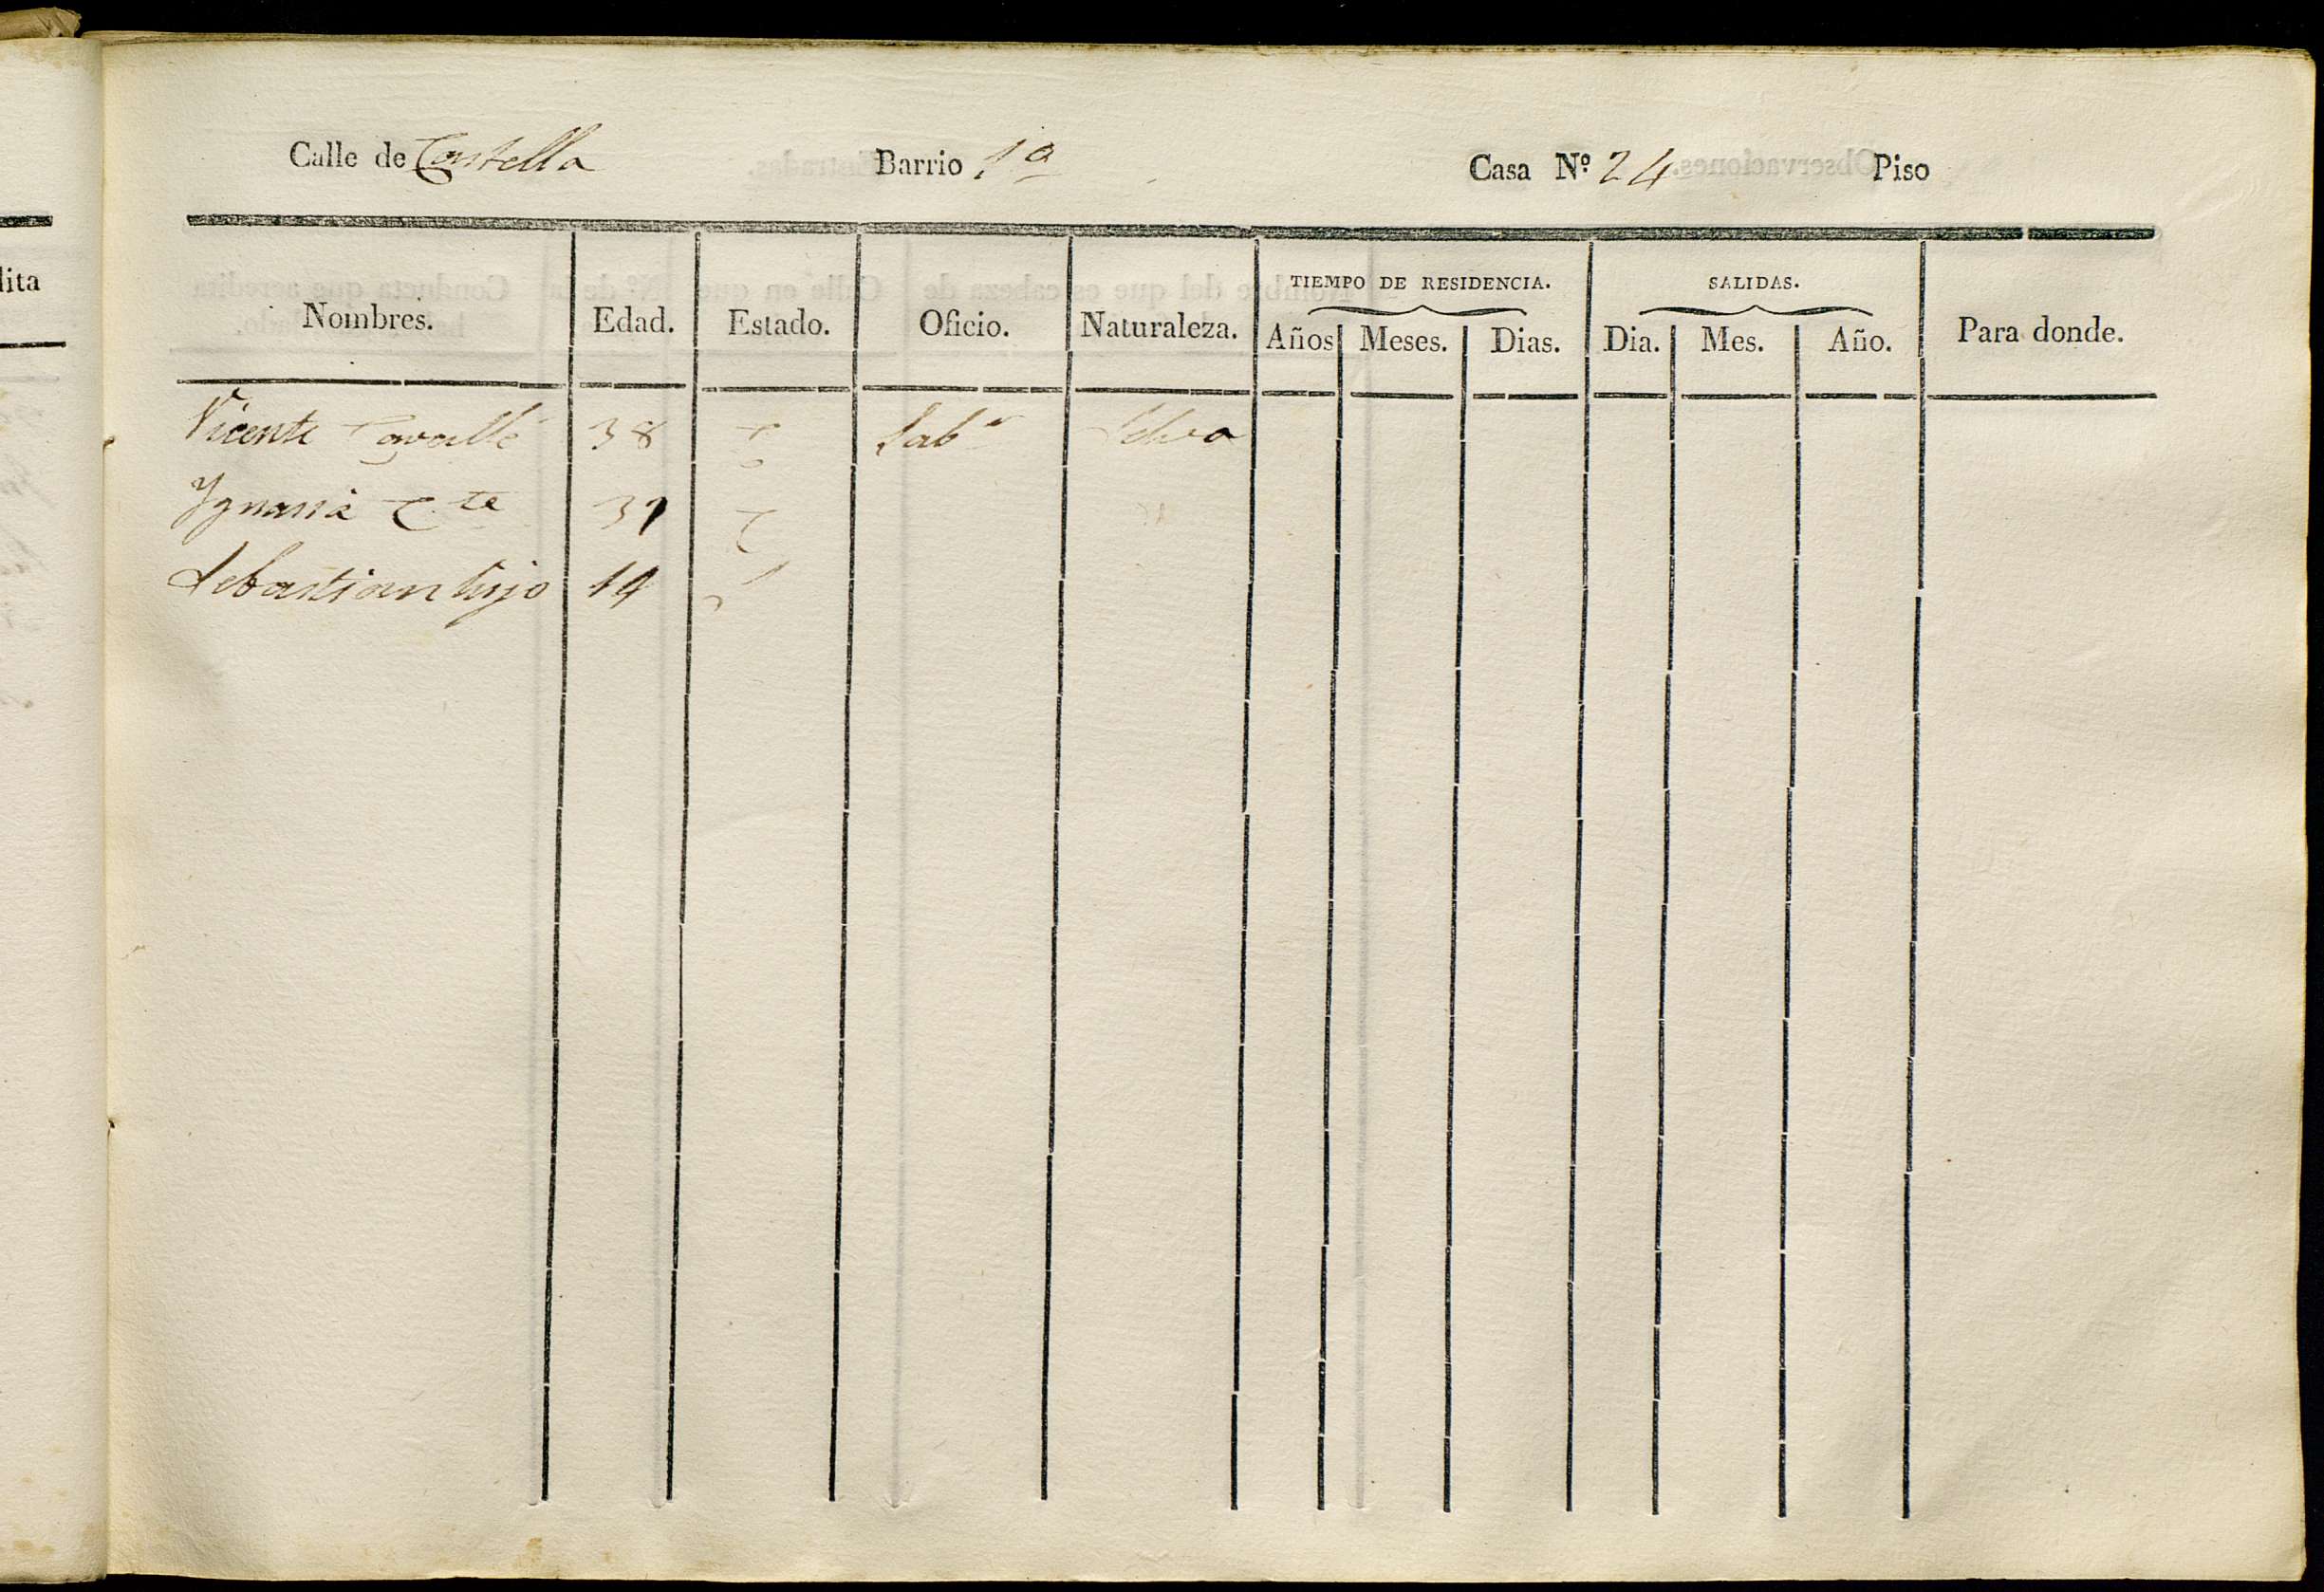 dita
Calle de Castella Barrio 1ª Casa Nº 24 Piso
TIEMPO DE RESIDENCIA. SALIDAS.
Nombres. Edad. Estado. Oficio. Naturaleza. Años Meses. Dias. Dia. Mes. Año. Para donde.
Vicente Cavallé 38 C Labr Selva
Ygnasia C.te 39 C
Sebastian hijo 14 S